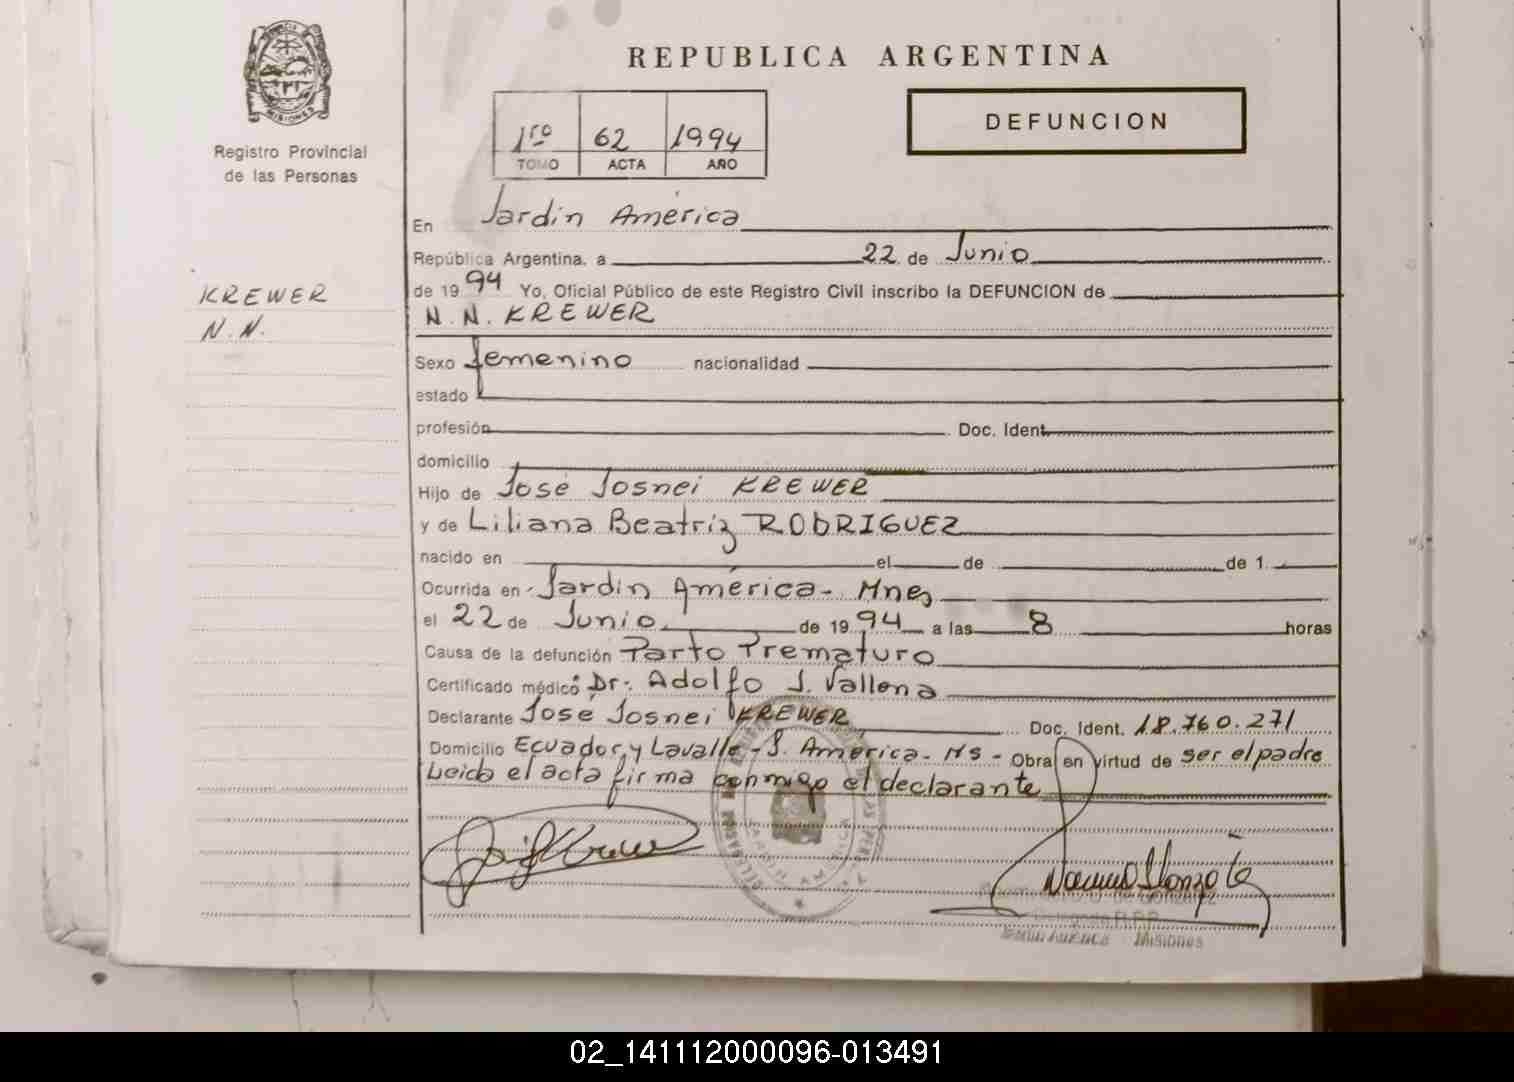 REPUBLICA ARGENTINA
MISIONES
Registro Provincial
de las Personas
1ro 62 1994
TOMO ACTA AÑO
DEFUNCION
KREWER
N.N.
En Jardin América
República Argentina, a 22 de Junio
de 1994 Yo, Oficial Público de este Registro Civil inscribo la DEFUNCION de
N.N. KREWER
Sexo femenino nacionalidad
estado
profesión Doc. Ident.
domicilio
Hijo de José Josnei KREWER
y de Liliana Beatriz RODRIGUEZ
nacido en el de de 1
Ocurrida en Jardin América - Mnes
el 22 de Junio de 1994 a las 8 horas
Causa de la defunción Parto Prematuro
Certificado médico Dr. Adolfo J. Vallena
Declarante José Josnei KREWER Doc. Ident. 18.760.271
Domicilio Ecuador y Lavalle - J. America - Ms - Obra en virtud de ser el padre
Leida el acta firma conmigo el declarante
JARDIN AMERICA
Delegada R.P.P.
Jardín América - Misiones
02_141112000096-013491